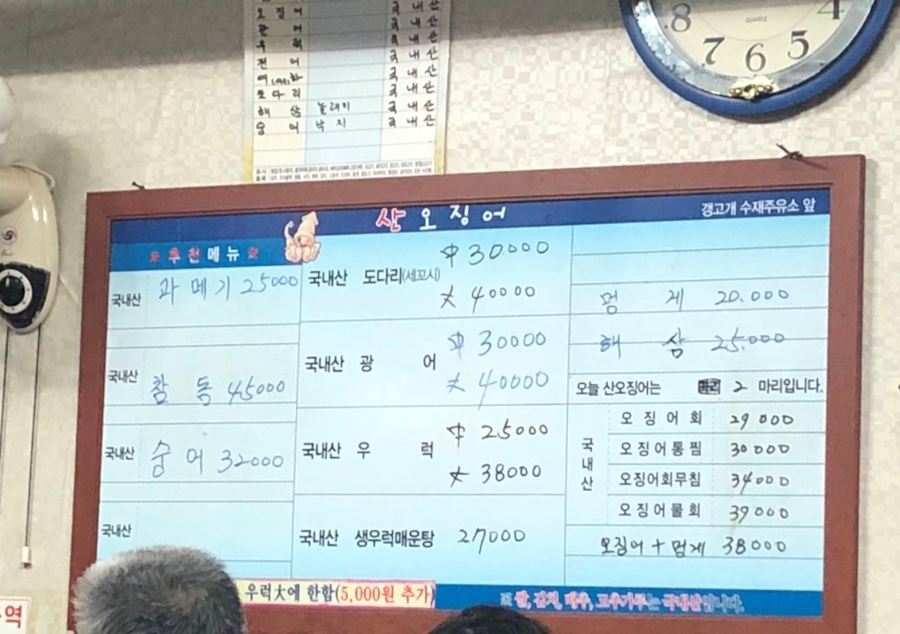 오징어 국내산
광어 국내산
우럭 국내산
전어 국내산
국내산
도다리 국내산
해삼 놀래미 국내산
숭어 낙지 국내산
8 7 6 5 4
QUARTZ
산 오징어
갱고개 수재주유소 앞
추천메뉴
국내산 과메기 25000
국내산 참돔 45000
국내산 숭어 32000
국내산
국내산 도다리(세꼬시) 中 30.000
大 40000
국내산 광어 中 30000
大 40000
국내산 우럭 中 25000
大 38000
국내산 생우럭매운탕 27000
멍게 20.000
해삼 25.000
오늘 산오징어는 2 마리입니다.
국내산
오징어회 29000
오징어통찜 30000
오징어회무침 34000
오징어물회 39000
오징어+멍게 38000
우럭大에 한함(5,000원 추가)
쌀, 김치, 배추, 고추가루는 국내산입니다.
역